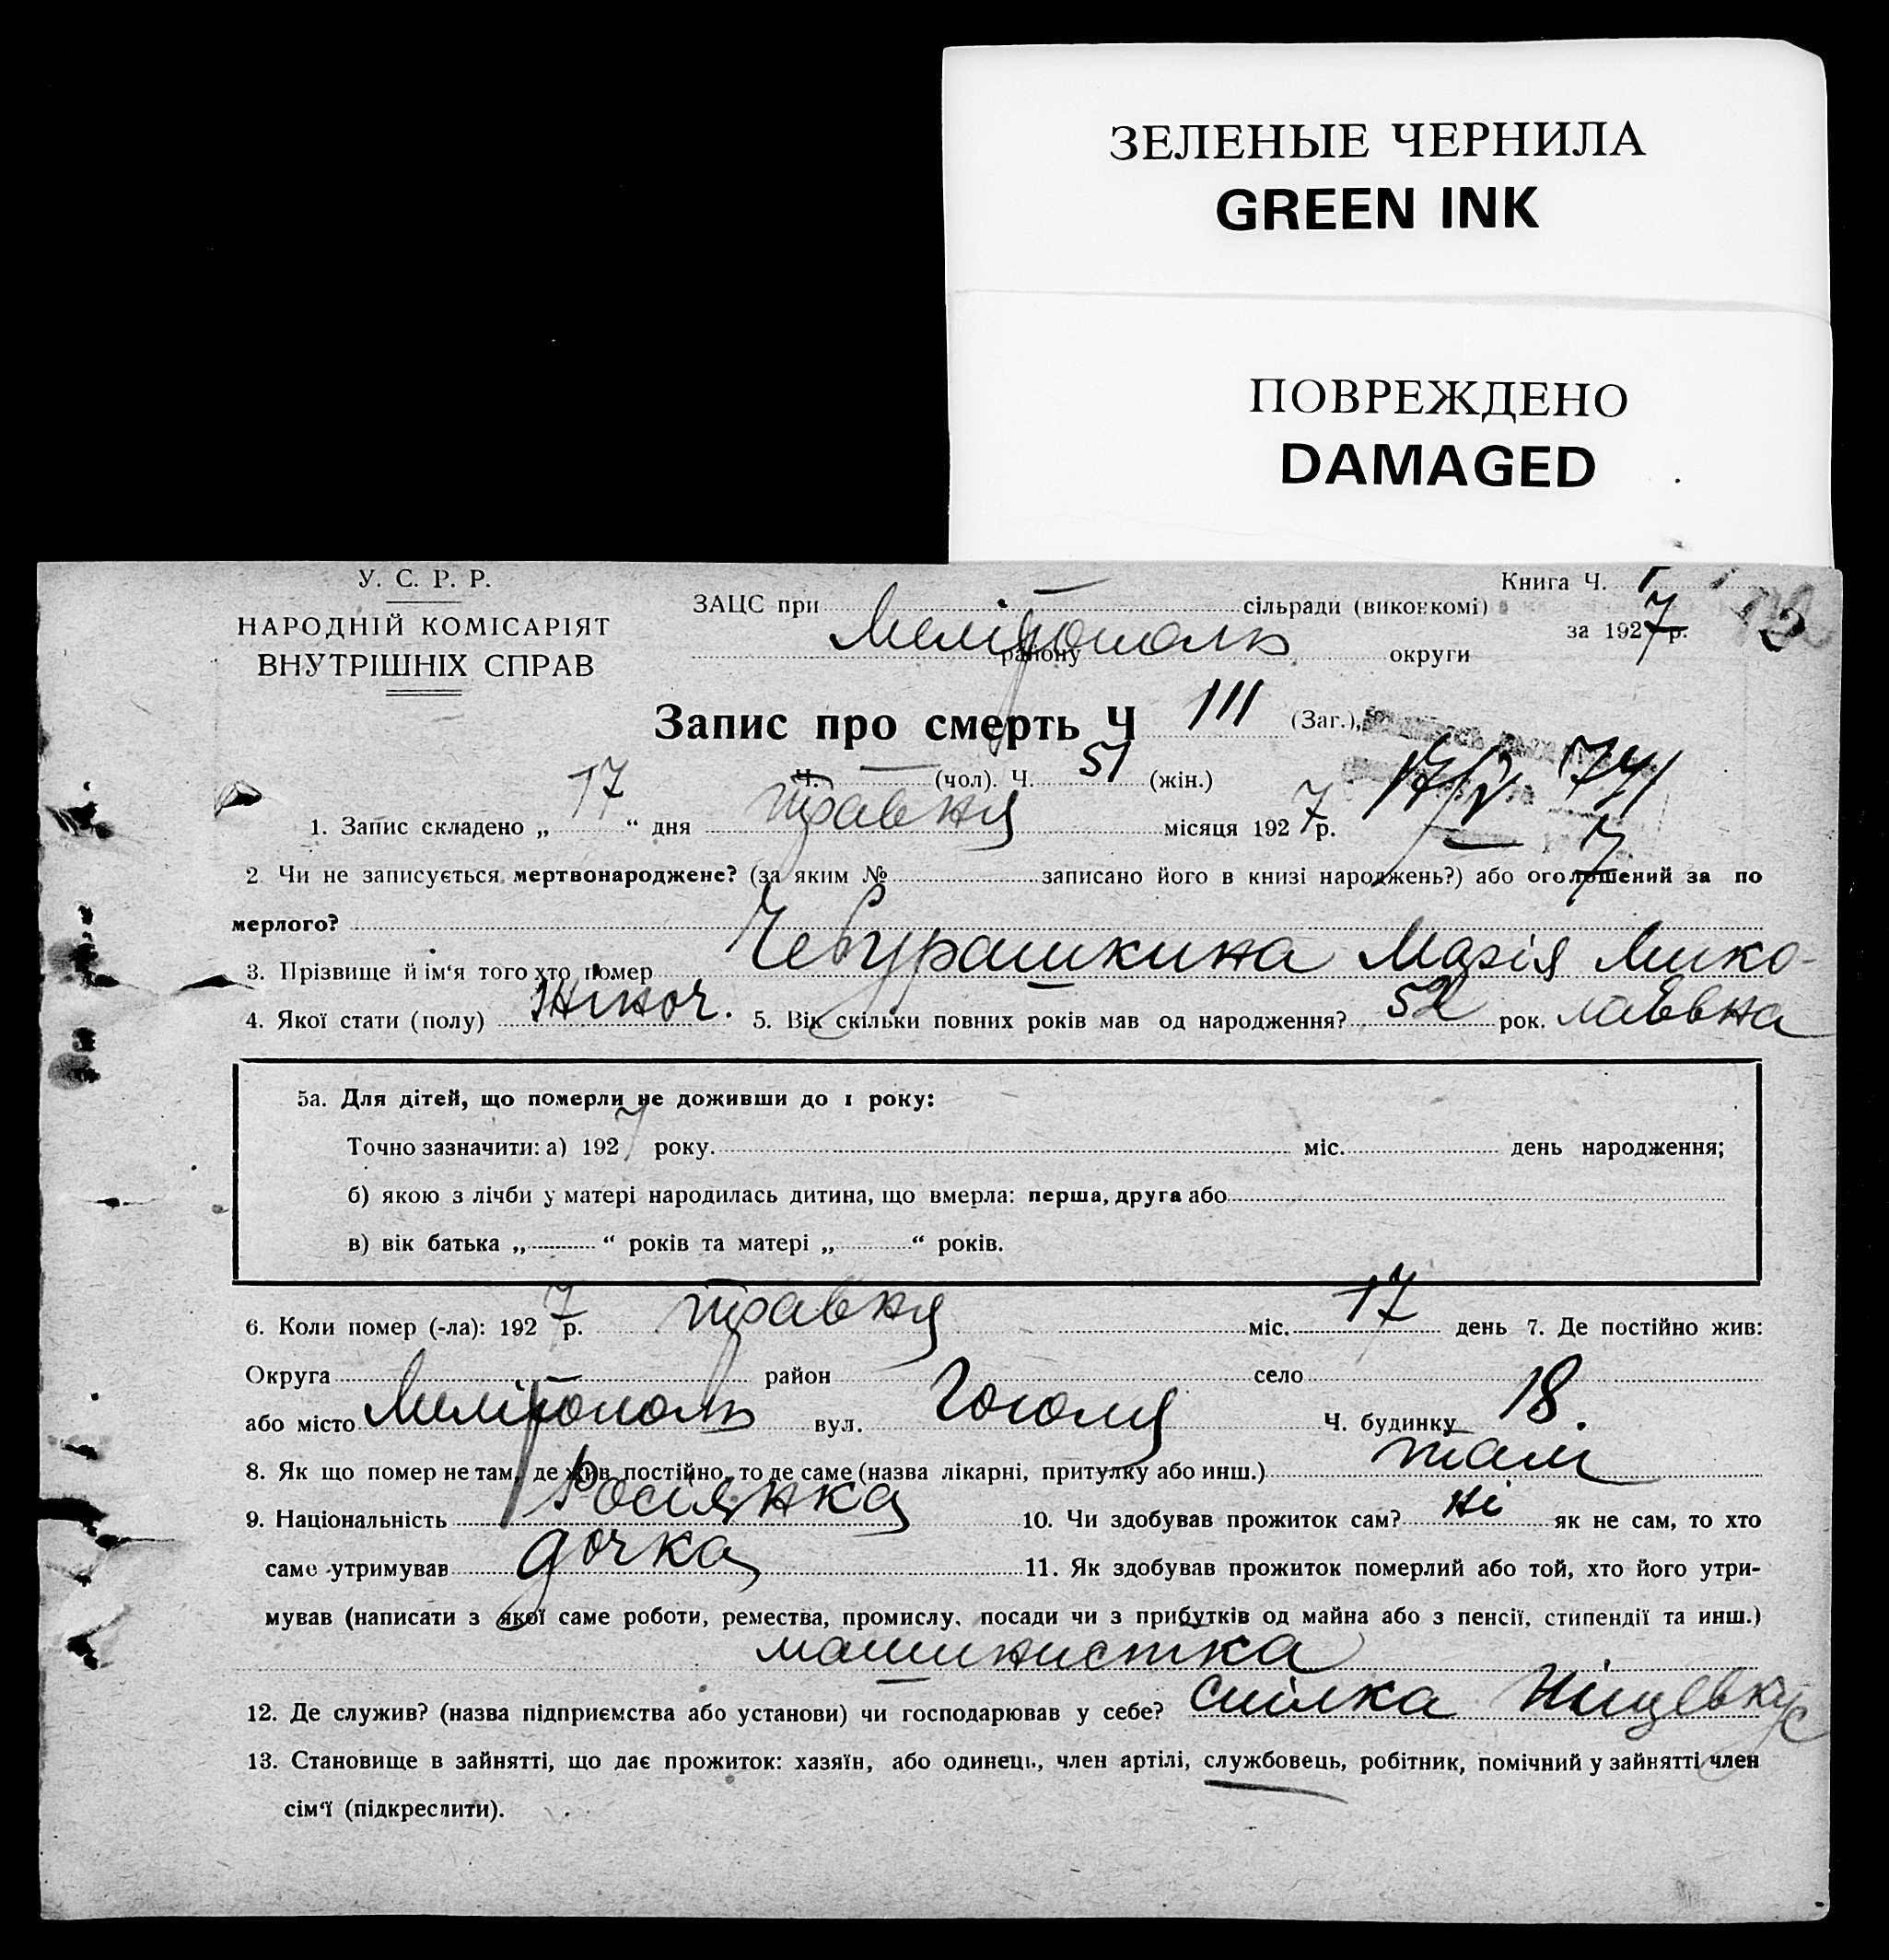 ЗЕЛЕНЫЕ ЧЕРНИЛА
GREEN INK
ПОВРЕЖДЕНО
DAMAGED
У. С. Р. Р.
НАРОДНІЙ КОМІСАРІЯТ
ВНУТРІШНІХ СПРАВ
Книга Ч. I
ЗАЦС при сільради (виконкомі)
за 1927 р.
Мелітополь
району округи
Запис про смерть Ч 111 (Заг.),
Ч. — (чол). Ч. 51 (жін.)
17/V 741
7
1. Запис складено „ 17 “ дня травня місяця 1927 р.
2 Чи не записується мертвонароджене? (за яким № записано його в книзі народжень?) або оголошений за по
мерлого?
3. Прізвище й ім'я того хто помер Чебурашкина Марія Мико-
4. Якої стати (полу) жіноч. 5. Вік скільки повних років мав од народження? 52 рок. лаєвна
5а. Для дітей, що померли не доживши до 1 року:
Точно зазначити: а) 1927 року. міс. день народження;
б) якою з лічби у матері народилась дитина, що вмерла: перша, друга або
в) вік батька „ “ років та матері „ “ років.
6. Коли помер (-ла): 1927 р. травня міс. 17 день 7. Де постійно жив:
Округа район село
або місто Мелітополь вул. Гоголя Ч. будинку 18.
8. Як що помер не там, де жив постійно, то де саме (назва лікарні, притулку або инш.) там
9. Національність Росіянка 10. Чи здобував прожиток сам? ні як не сам, то хто
саме утримував дочка 11. Як здобував прожиток померлий або той, хто його утри-
мував (написати з якої саме роботи, ремества, промислу, посади чи з прибутків од майна або з пенсії, стипендії та инш.)
машинистка
12. Де служив? (назва підприємства або установи) чи господарював у себе? спілка
13. Становище в зайнятті, що дає прожиток: хазяїн, або одинець, член артілі, службовець, робітник, помічний у зайнятті член
сім'ї (підкреслити).